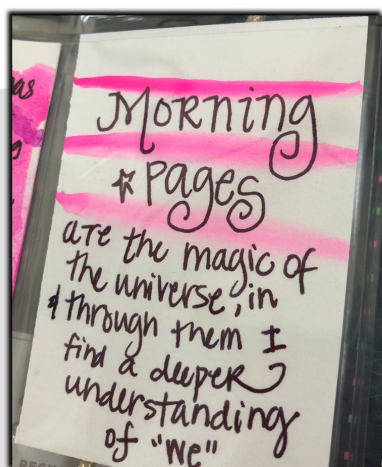 Morning
pages
are the magic of
the universe, in
& through them I
find a deeper
understanding
of "me"